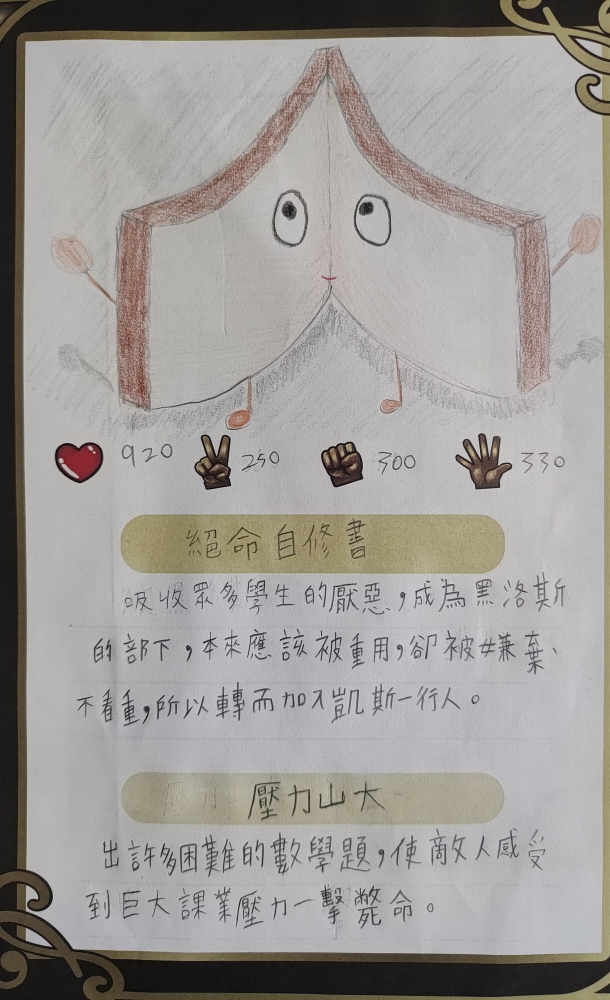 920 250 300 330
絕命自修書
吸收眾多學生的厭惡，成為黑洛斯
的部下，本來應該被重用，卻被嫌棄、
不看重，所以轉而加入凱斯一行人。
壓力山大
出許多困難的數學題，使敵人感受
到巨大課業壓力一擊斃命。